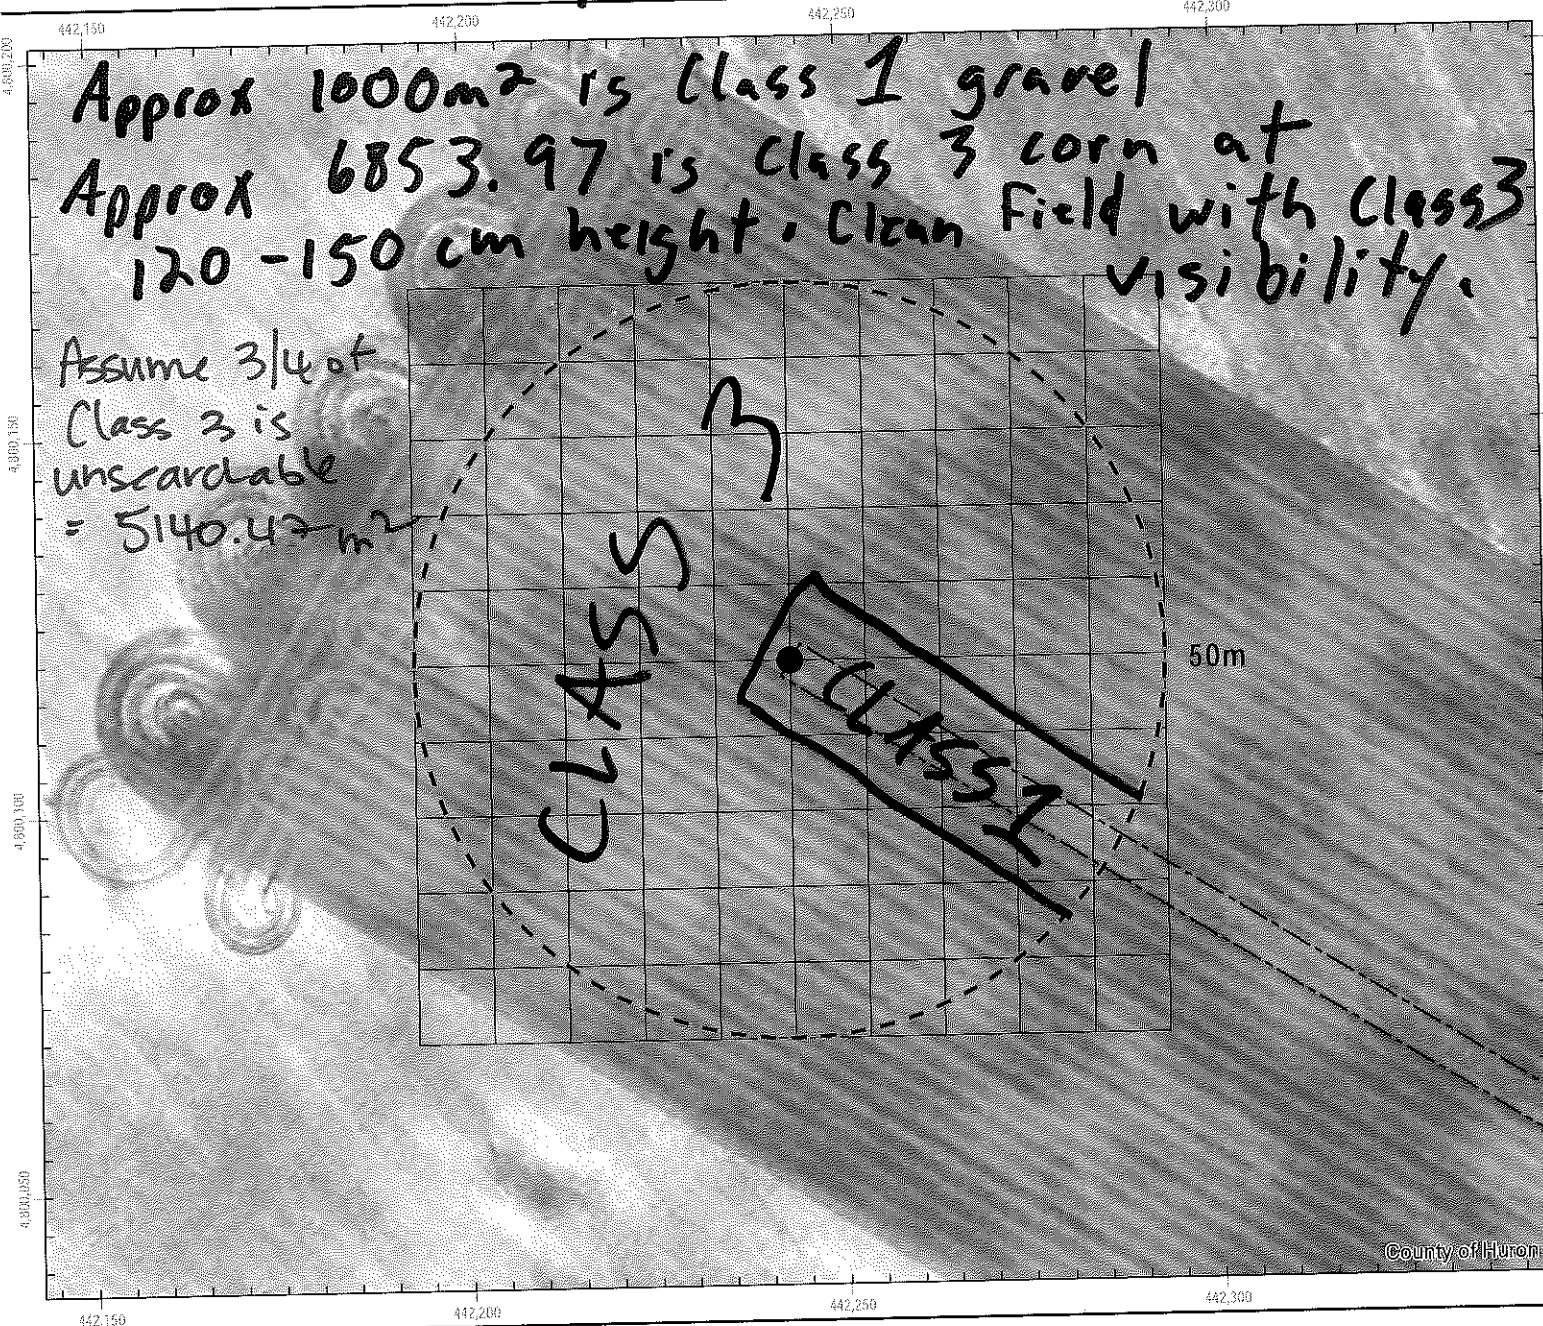 442,150 442,200 442,250 442,300
4,800,200
Approx 1000m² is Class 1 gravel
Approx 6853.97 is Class 3 corn at
120-150 cm height. Clean Field with Class 3
visibility.
Assume 3/4 of
Class 3 is
unsearchable
= 5140.47 m²
4,800,150
CLASS 3
50m
CLASS 1
4,800,100
4,800,050
County of Huron
442,150 442,200 442,250 442,300